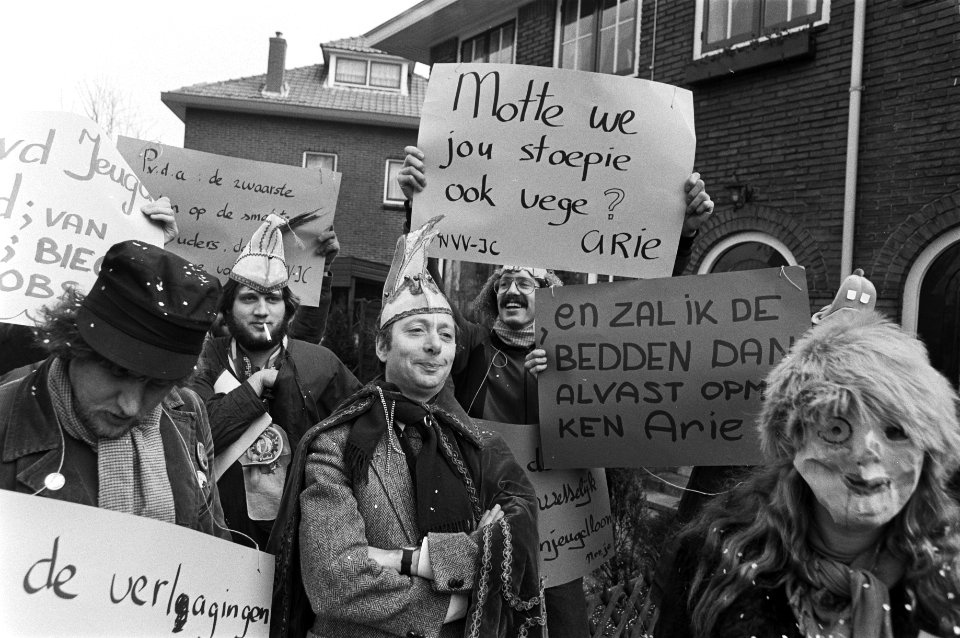 vd Jeugd
d; VAN
; BIEG
OBS
P.v.d.a : de zwaarste
op de sm
ouders, de
JC
Motte we
jou stoepie
ook vege?
NVV-JC ARIE
, en ZAL IK DE
BEDDEN DAN
ALVAST OPM
KEN Arie
d
wisselijk
njeugdloon
de verlagingen